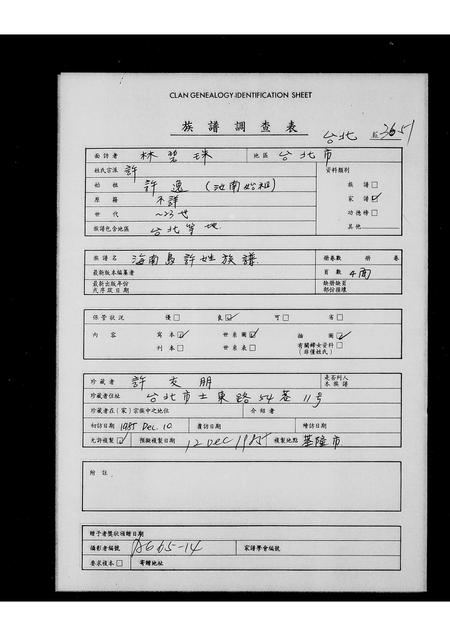 CLAN GENEALOGY IDENTIFICATION SHEET
族譜調查表
台北 3651
面訪者 林碧珠 地區 台北市
姓氏宗派 許 資料類別
始祖 許逸(海南始祖) 族譜□
原籍 不詳 家譜☑
世代 ~23世 功德榜□
族譜包含地區 台北等地 其他
族譜名 海南島許姓族譜 冊卷數 冊 卷
最新版本編纂者 頁數 4面
最新出版年份或序跋日期 缺冊缺頁部份描述
保管狀況 優□ 良☑ 可□ 劣□
內容 寫本☑ 世系圖☑ 插圖☑
刊本□ 世系表□ 有關婦女資料(非僅姓氏)□
珍藏者 許友朋 是否列入本族譜
珍藏者住址 台北市士東路54巷11号
珍藏者在(家)宗族中之地位 介紹者
初訪日期 1985 Dec. 10 覆訪日期 續訪日期
允許複製☑ 預擬複製日期 12 Dec 1985 複製地點 基隆市
附註
贈予者獎狀複贈日期
攝影者編號 家譜學會編號
要求複本□ 寄贈地址